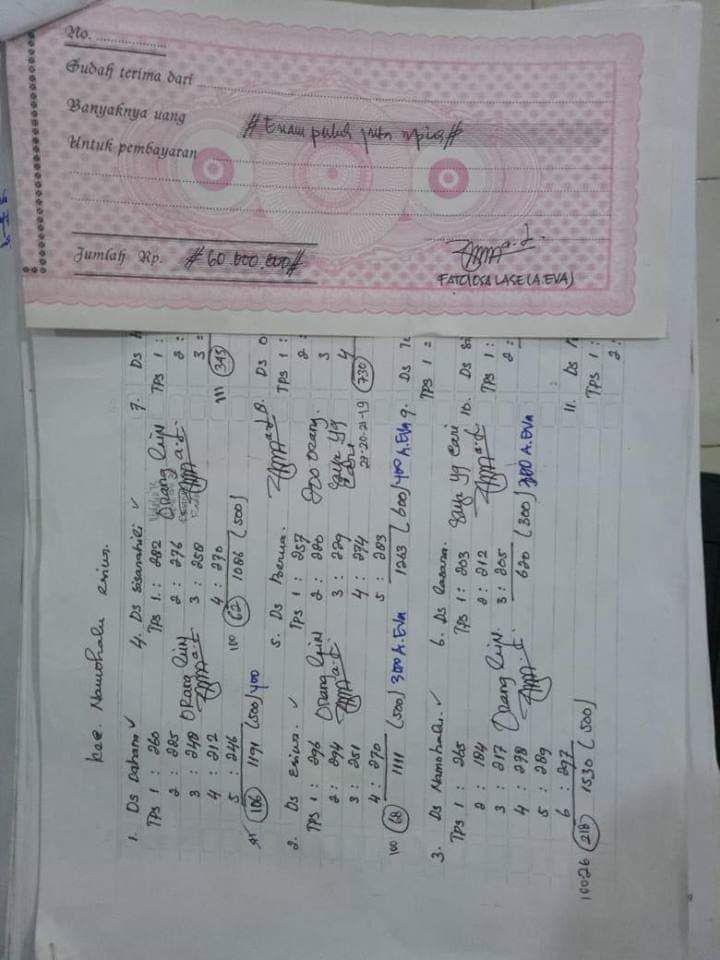 No. ................
Sudah terima dari
Banyaknya uang # Enam puluh juta rupiah #
Untuk pembayaran
Jumlah Rp. # 60.000.000 #
FATOLOSA LASE (A.EVA)
Kec. Namohalu Esiwa.
1. Ds Dahana ✓
TPS 1 : 260
2 : 225
3 : 248
4 : 212
5 : 246
106 1191 (500) 400
Orang Lijn
2. Ds Esiwa. ✓
TPS 1 : 296
2 : 294
3 : 251
4 : 270
100 68 1111 (500) 300 A.EVA
Orang Lijn
3. Ds Namohalu. ✓
TPS 1 : 265
2 : 184
3 : 217
4 : 278
5 : 289
6 : 297
10026 218 1530 (500)
Orang Lijn
4. Ds Sisarahili ✓
TPS 1 : 282
2 : 276
3 : 258
4 : 270
100 62 1086 (500)
Orang Lijn
5. Ds Berua.
TPS 1 : 257
2 : 220
3 : 229
4 : 274
5 : 283
1263 (600) 400 A.EVA
200 orang.
Saya yg
Cari
6. Ds Lasara.
TPS 1 : 203
2 : 212
3 : 205
620 (300) 200 A.EVA
Saya yg Cari
7. Ds
TPS 1 :
2 :
3 :
111 345
8. Ds O
TPS 1 :
2 :
3
4
730
9. Ds
TPS 1 :
10. Ds
TPS 1 :
2 :
11. Ds
TPS 1 :
2 :